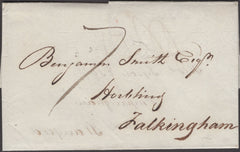 7
Benjamin Smith Esqr.
Horbling
Falkingham